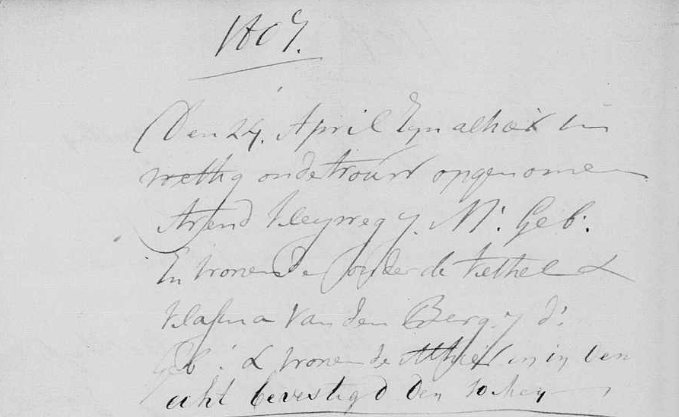 1807.
Den 24. April Zyn alhier in
wettig ondetrouw opgenomen
Arend Kleyweg j. M. Geb.
En wonende onder de Kethel &
Klasina Van den Berg j d.
Geb: & wonende Alhier en in den
echt bevestigd den 10 Mey